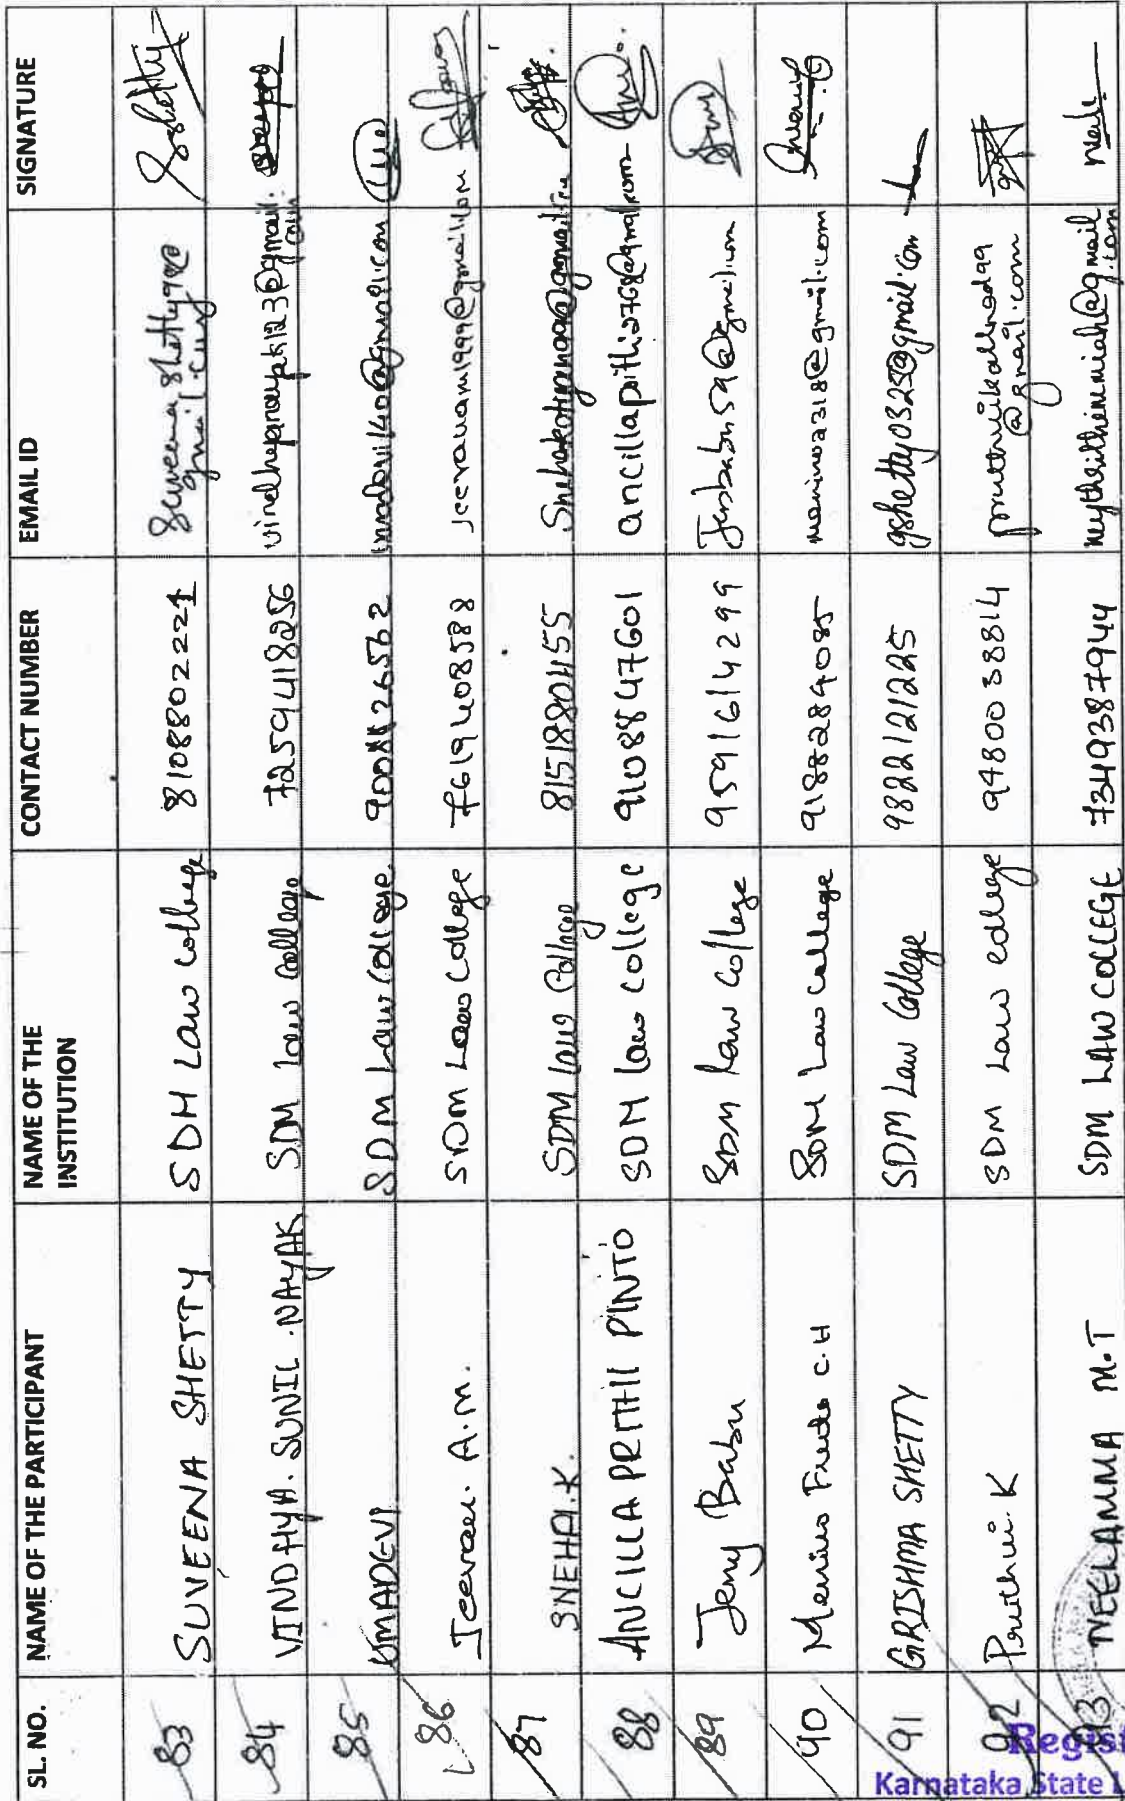 SL. NO. NAME OF THE PARTICIPANT NAME OF THE INSTITUTION CONTACT NUMBER EMAIL ID SIGNATURE
83 SUVEENA SHETTY SDM Law College 8108802221 gmail.com Shetty
84 VINDHYA. SUNIL. NAYAK SDM Law College 7259418256 @gmail.com
85 UMADEVI SDM Law College @gmail.com
86 Jeevan. A.M. SDM Law College 7619408588 jeevanam1999@gmail.com
87 SNEHA.K. SDM Law College 8151880455
88 ANCILLA PRITHI PINTO SDM Law College 9108847601
89 Jeny Babu SDM Law College 9591614299 Jenbabu59@gmail.com
90 C.H SDM Law College 9188284085 @gmail.com
91 GRISHMA SHETTY SDM Law College 9822121225 gshetty0325@gmail.com
92 Pruthvi. K SDM Law College 9480038814 @gmail.com
93 NEELAMMA M.T SDM LAW COLLEGE 7349387944 @gmail.com
Regist
Karnataka State L